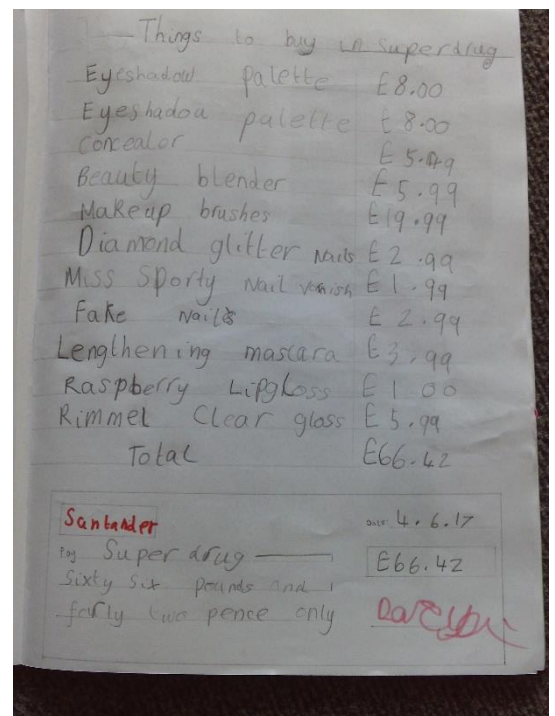 Things to buy in Superdrug
Eyeshadow palette £8.00
Eyeshadou palette £8.00
Concealor £5.49
Beauty blender £5.99
Makeup brushes £19.99
Diamond glitter Nails £2.99
Miss Sporty Nail vanish £1.99
Fake Nails £2.99
Lengthening mascara £3.99
Raspberry LipgLoss £1.00
Rimmel Clear gloss £5.99
Total £66.42
Santander Date 4.6.17
Pay Superdrug £66.42
Sixty Six pounds and
forty two pence only